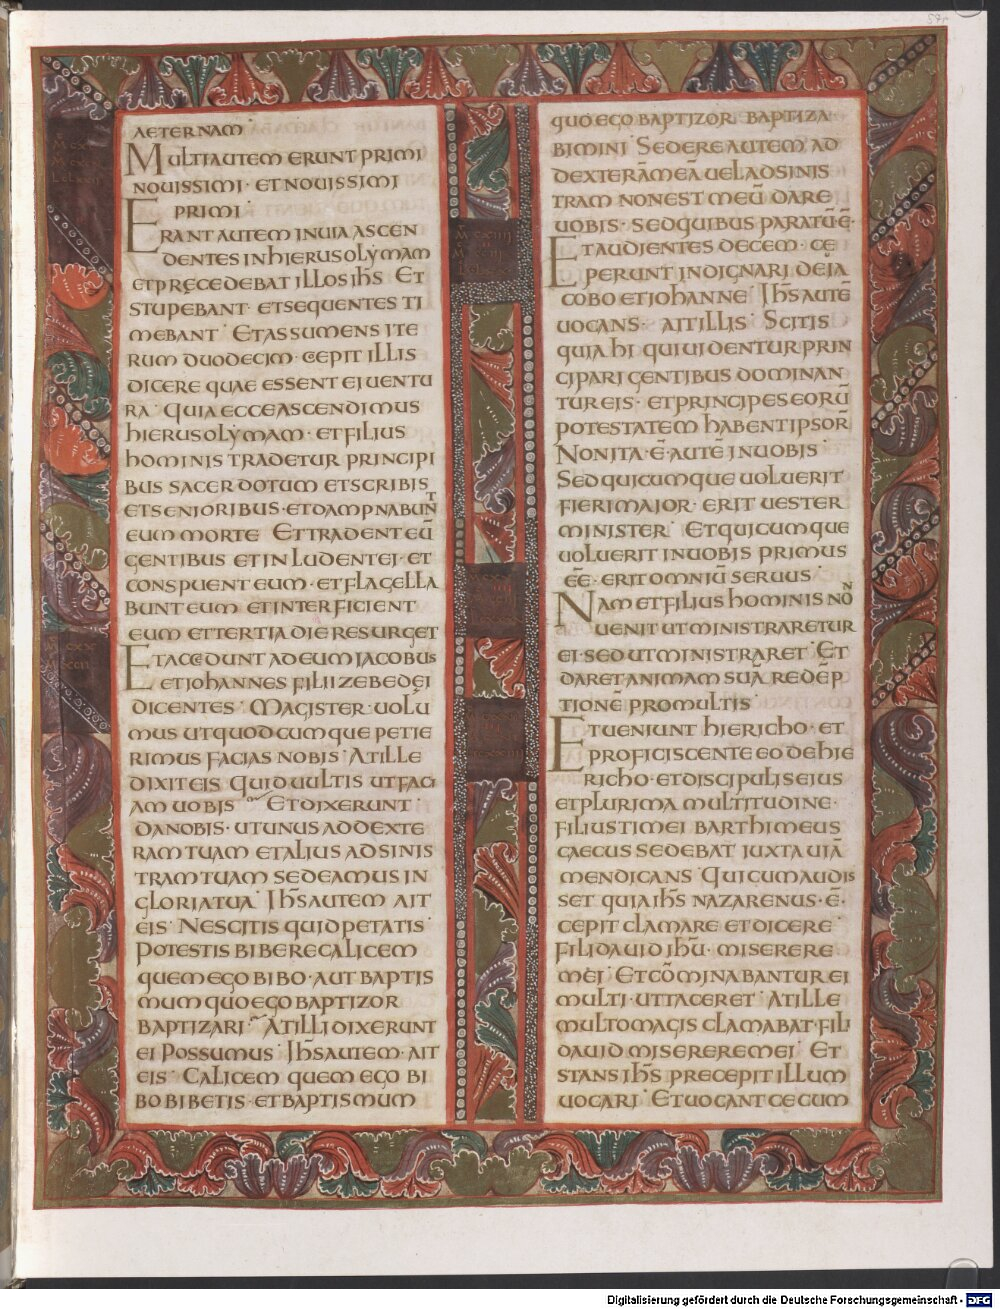 57r
AETERNAM
MULTI AUTEM ERUNT PRIMI
NOUISSIMI · ET NOUISSIMI
PRIMI ·
ERANT AUTEM IN UIA ASCEN
DENTES IN HIERUSOLYMAM
ET PRĘCEDEBAT ILLOS IHS ET
STUPEBANT · ET SEQUENTES TI
MEBANT · ET ASSUMENS ITE
RUM DUODECIM · CEPIT ILLIS
DICERE QUAE ESSENT EI UENTU
RA · QUIA ECCE ASCENDIMUS
HIERUSOLYMAM · ET FILIUS
HOMINIS TRADETUR PRINCIPI
BUS SACERDOTUM ET SCRIBIS
ET SENIORIBUS · ET DAMPNABUNT
EUM MORTE · ET TRADENT EŪ
GENTIBUS ET INLUDENT EI · ET
CONSPUENT EUM · ET FLAGELLA
BUNT EUM ET INTERFICIENT
EUM ET TERTIA DIE RESURGET
ET ACCEDUNT AD EUM IACOBUS
ET IOHANNES FILII ZEBEDĘI
DICENTES · MAGISTER · UOLU
MUS UT QUODCUMQUE PETIE
RIMUS FACIAS NOBIS · AT ILLE
DIXIT EIS QUID UULTIS UT FACI
AM UOBIS · ET DIXERUNT ·
DA NOBIS · UT UNUS AD DEXTE
RAM TUAM ET ALIUS AD SINIS
TRAM TUAM SEDEAMUS IN
GLORIA TUA · IHS AUTEM AIT
EIS · NESCITIS QUID PETATIS ·
POTESTIS BIBERE CALICEM
QUEM EGO BIBO · AUT BAPTIS
MUM QUO EGO BAPTIZOR
BAPTIZARI · AT ILLI DIXERUNT
EI POSSUMUS · IHS AUTEM · AIT
EIS · CALICEM QUEM EGO BI
BO BIBETIS · ET BAPTISMUM
QUO EGO BAPTIZOR BAPTIZA
BIMINI · SEDERE AUTEM AD
DEXTERĀ MEĀ UEL AD SINIS
TRAM NON EST MEŪ DARE
UOBIS · SED QUIBUS PARATŪ E ·
ET AUDIENTES DECEM · CE
PERUNT INDIGNARI DE IA
COBO ET IOHANNE · IHS AUTĒ
UOCANS · AIT ILLIS · SCITIS
QUIA HI QUI UIDENTUR PRIN
CIPARI GENTIBUS DOMINAN
TUR EIS · ET PRINCIPES EORŪ
POTESTATEM HABENT IPSOR
NON ITA · Ē · AUTĒ IN UOBIS ·
SED QUICUMQUE UOLUERIT
FIERI MAIOR · ERIT UESTER
MINISTER · ET QUICUMQUE
UOLUERIT IN UOBIS PRIMUS
ĒĒ · ERIT OMNIŪ SERUUS ·
NAM ET FILIUS HOMINIS NON
UENIT UT MINISTRARETUR
EI · SED UT MINISTRARET · ET
DARET ANIMAM SUĀ REDĒP
TIONĒ PRO MULTIS
ET UENIUNT HIERICHO · ET
PROFICISCENTE EO DE HIE
RICHO · ET DISCIPULIS EIUS
ET PLURIMA MULTITUDINE ·
FILIUS TIMEI BARTHIMEUS
CAECUS SEDEBAT IUXTA UIĀ
MENDICANS · QUI CUM AUDIS
SET QUIA IHS NAZARENUS · Ē ·
CEPIT CLAMARE ET DICERE
FILI DAUID IHU · MISERERE
MEI · ET CŌMINABANTUR EI
MULTI · UT TACERET · AT ILLE
MULTO MAGIS CLAMABAT · FILI
DAUID MISERERE MEI · ET
STANS IHS PRECEPIT ILLUM
UOCARI · ET UOCANT CECUM
Digitalisierung gefördert durch die Deutsche Forschungsgemeinschaft - DFG